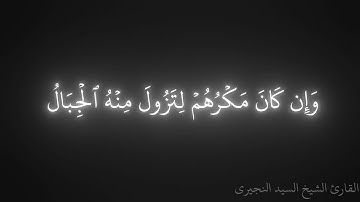 وَإِن كَانَ مَكْرُهُمْ لِتَزُولَ مِنْهُ ٱلْجِبَالُ
القارئ الشيخ السيد النجيرى